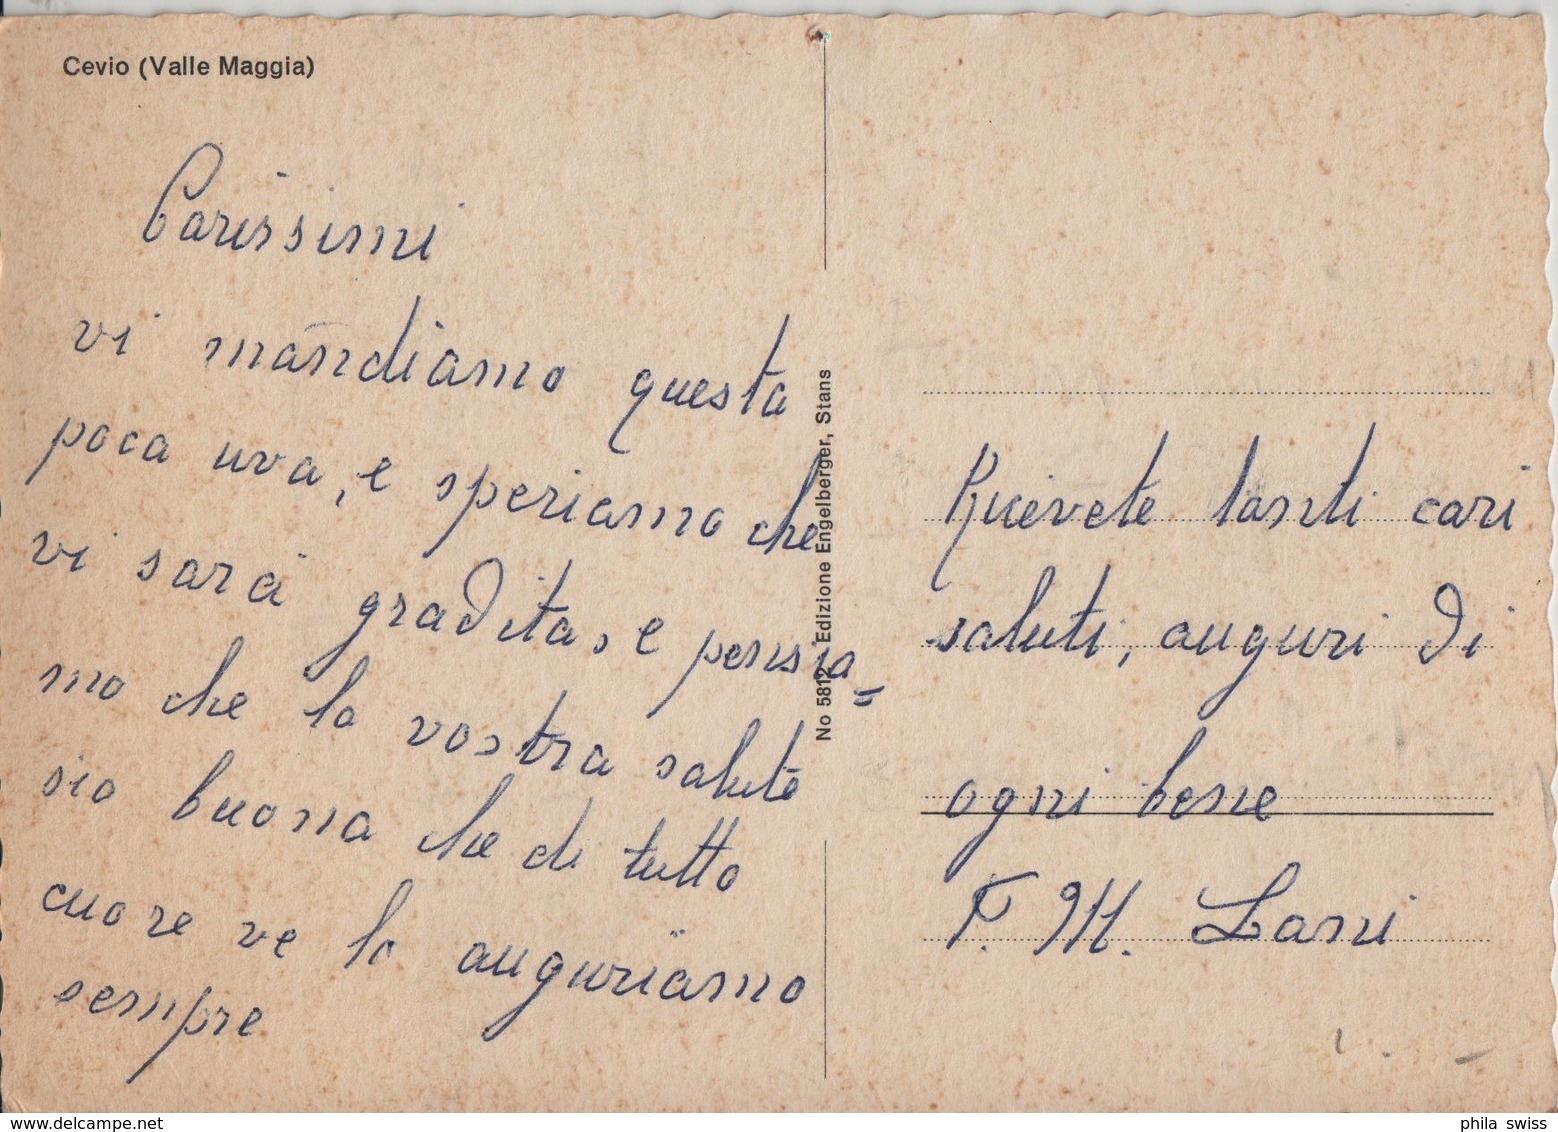 Cevio (Valle Maggia)
Carissimi
vi mandiamo questa
poca uva, e speriamo che
vi sarà gradita, e pensia=
mo che la vostra salute
sia buona che di tutto
cuore ve la auguriamo
sempre
No 5812 Edizione Engelberger, Stans
Ricevete tanti cari
saluti, auguri di
ogni bene
F. M. Lani
www.delcampe.net
phila swiss